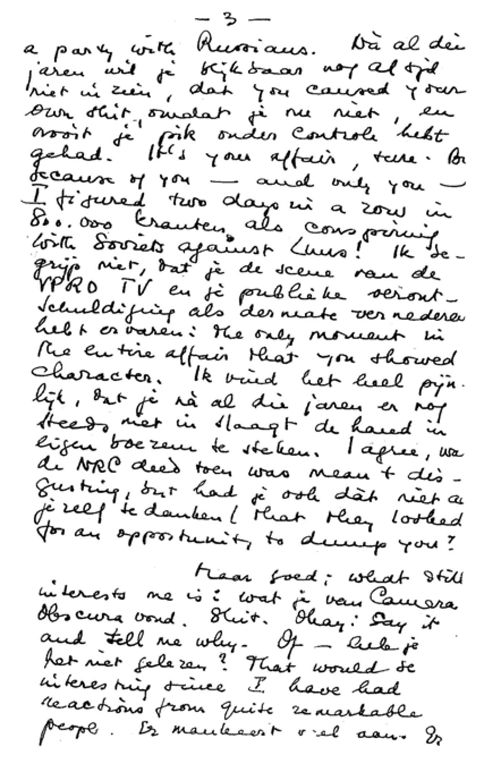 — 3 —
a party with Russians. Nà al die
jaren wil je blijkbaar nog altijd
niet inzien, dat you caused your
own shit, omdat je nu niet, en
nooit je pik onder controle hebt
gehad. It's your affair, sure.
because of you — and only you —
I figured two days in a row in
800.000 kranten als conspiring
with Soviets against Luns! Ik be-
grijp niet, dat je de scene van de
VPRO TV en je publieke veront-
schuldiging als dermate vernederen
hebt ervaren: the only moment in
the entire affair that you showed
character. Ik vind het heel pijn-
lijk, dat je nà al die jaren er nog
steeds niet in slaagt de hand in
eigen boezem te steken. I agree, wa
de NRC deed toen was mean + dis-
gusting, but had je ook dàt niet a
jezelf te danken (that they looked
for an opportunity to dump you?
Maar goed: what still
interests me is: wat je van Camera
Obscura vond. Shit. Okay: Say it
and tell me why. Of — heb je
het niet gelezen? That would be
interesting since I have had
reactions from quite remarkable
people. Er mankeert veel aan. Er